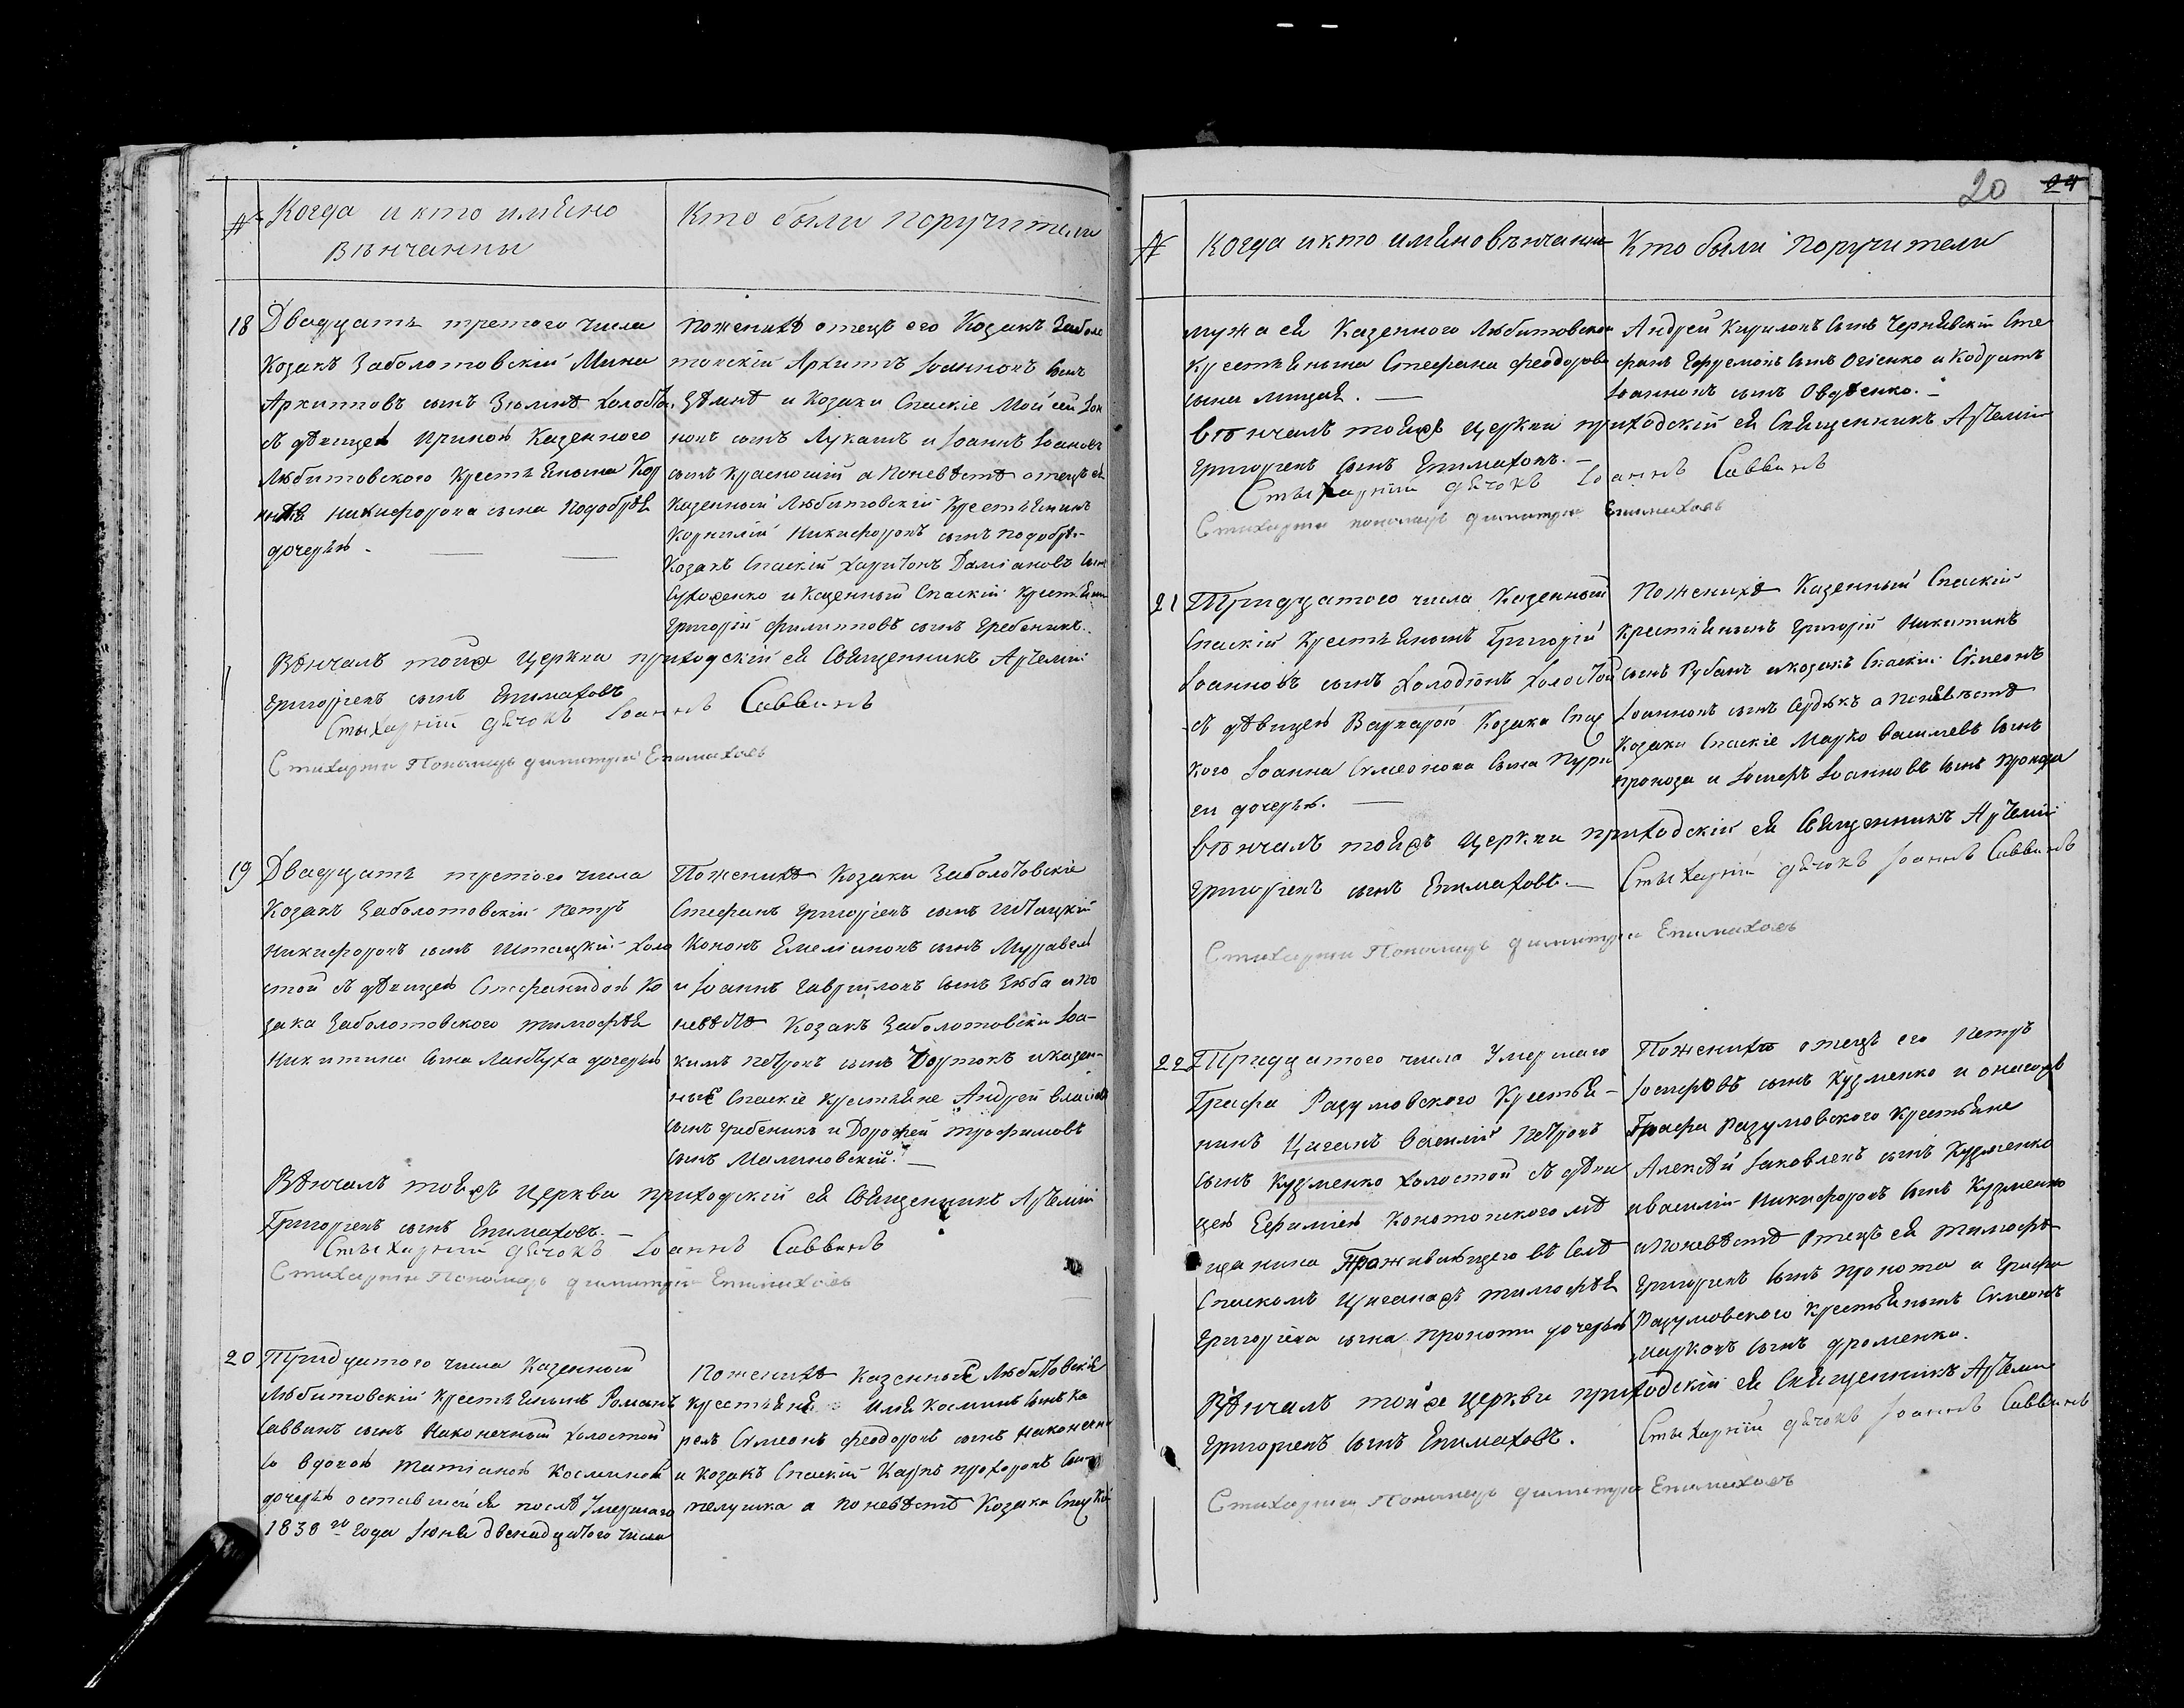 № Когда и кто имяно
вѣнчанны
Кто были поручители
18 Двадцать третого числа
Козакъ Заболотовскій Мина
Архиповъ сынъ Зюлинѣ холостъ
съ дѣвицею Ириною Казенного
Любитовского Крестьянына Кор
нилія Никифорова сына Подобрѣя
дочерью.
По женихѣ отецъ его Козакъ Заболо
товскій Архипъ Іоанновъ сынъ
и Козаки Спаскіе Мойсей Іоа
новъ сынъ Лукашъ и Іоаннъ Іоановъ
сынъ а По невѣстѣ отецъ ея
Казенный Любитовскій Крестьянинъ
Корнилій Никифоровъ сынъ Подобрѣ-
Козакъ Спаскій Харитонъ Даміановъ сынъ
и Казенный Спаскій Крестьянин
Григорій Филипповъ сынъ Гребеникъ.
Вѣнчалъ тойже Церкви приходскій ея Священникъ Артемій
Григоріевъ сынъ Епимаховъ
Стыхарній дьячокъ Іоаннъ Саввинъ
Стихарни Пономарь Димитрій Епимаховъ
19 Двадцать третого числа
Козакъ Заболотовскій Петръ
Никифоровъ сынъ Штацкій холо
стой съ дѣвицею Стефанидою Ко
зака Заболотовского Тимофѣя
Никитина сына Лантуха дочерью
По женихѣ Козаки Заболотовскіе
Стефанъ Григоріевъ сынъ Штацкій
Кононъ Емеліановъ сынъ Муравей
и Іоаннъ Гавріиловъ сынъ Зюба а по
невѣстѣ Козакъ Заболотовскій Іоа-
кимъ Петровъ сынъ и казен-
ные Спаскіе крестьяне Андрей Власіовъ
сынъ Гребеникъ и Дорофей Трофимовъ
сынъ Малиновскій.
Вѣнчалъ тояжъ Церкви приходскій ея Священникъ Артемій
Григоріевъ сынъ Епимаховъ.
Стыхарній дьячокъ Іоаннъ Саввинъ
Стихарни Пономарь Димитрій Епимаховъ
20 Тридцатого числа Казенный
Любитовскій Крестьянынъ Романъ
Саввинъ сынъ Наконечный холостой
со вдовою Татіаною Косминою
дочерью оставшейся послѣ Умершаго
1838го года Іюня двенадцатого числа
По женихѣ Казенные Любитовскія
крестьяне Илія Косминъ сынъ Ка
релъ Сѵмеонъ Феодоровъ сынъ Наконечни
и козакъ Спаскій Карпъ Прохоровъ сынъ
пелушка а по невѣстѣ Козаки Спаскій
20 24
№ Когда и кто имяно вѣнчанны
Кто были поручители
мужа ея Казенного Любитовского
Крестьянына Стефана Феодорова
сына Лищая.
Андрей Кириловъ сынъ Чернявскій Сте
фанъ Ефремовъ сынъ Огіенко и Кодратъ
Іоанновъ сынъ Овдѣенко.
Вѣнчалъ тояжъ церкви приходскій ея Священникъ Артемій
Григоріевъ сынъ Епимаховъ.
Стыхарній дьячокъ Іоаннъ Саввинъ
Стихарни пономарь Димитрій Епимаховъ
21 Тридцатого числа Казенный
Спаскій Крестьянынъ Григорій
Іоанновъ сынъ Холодіонъ холостой
съ дѣвицею Варварою Козака Спас
кого Іоанна Сѵмеонова сына Пури
ги дочерью.
По женихѣ Казенный Спаскій
крестьянынъ Григорій Никитинъ
сынъ Рубанъ и козакъ Спаскій Сѵмеонъ
Іоанновъ сынъ Сердюкъ а По невѣстѣ
Козаки Спаскіе Марко Василіевъ сынъ
и Іосифъ Іоанновъ сынъ
Вѣнчалъ тояжъ Церкви приходскій ея Священникъ Артемій
Григоріевъ сынъ Епимаховъ. Стыхарній дьячокъ Іоаннъ Саввинъ
Стихарни Пономарь Димитрій Епимаховъ
22 Тридцатого числа Умершаго
Графа Разумовского Крестья-
нинъ Циганъ Василій Петровъ
сынъ Кузменко холостой съ дѣви
цею Ефиміею Конотопского мѣ
щанина Проживающего въ селѣ
Спаскомъ Цигана Тимофѣя
Григоріева сына Проноти дочерью
По женихѣ отецъ его Петръ
Іосифовъ сынъ Кузменко и онагожъ
Графа Разумовского Крестьяне
Алексѣй Іаковлевъ сынъ Кузменко
и Василій Никифоровъ сынъ Кузменко
а По невѣстѣ Отецъ ея Тимофѣ
Григоріевъ сынъ Пронота и Графа
Разумовского Крестьянынъ Сѵмеонъ
Марковъ сынъ Фроменко.
Вѣнчалъ тойже Церкви приходскій ея Священникъ Артемій
Григоріевъ сынъ Епимаховъ. Стыхарній дьячокъ Іоаннъ Саввинъ
Стихарни Пономарь Димитрій Епимаховъ